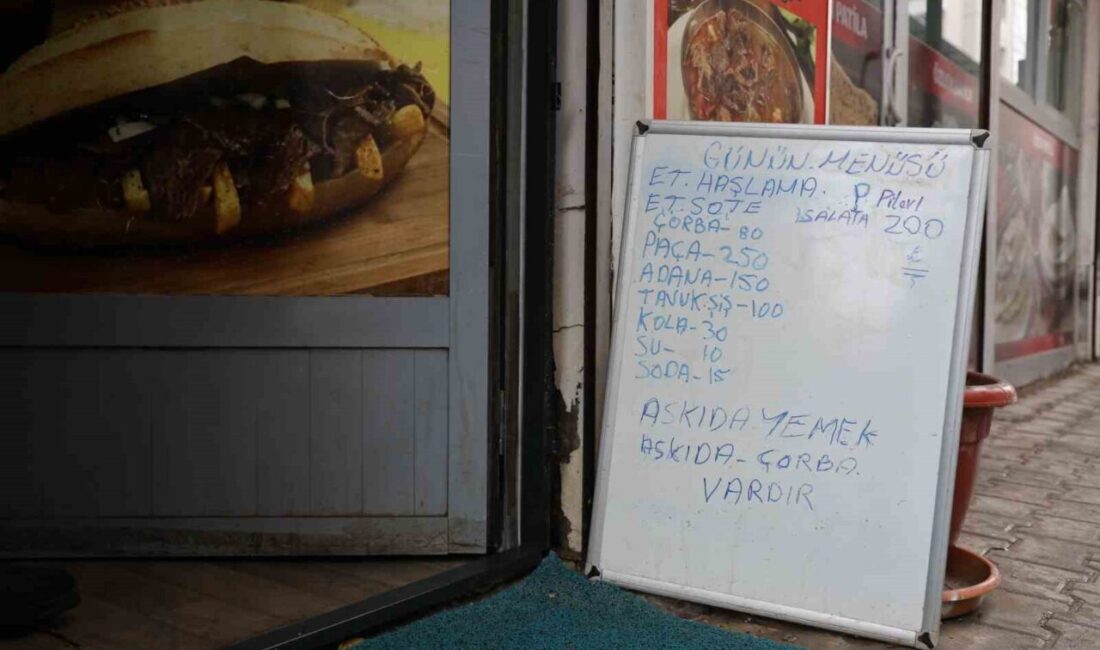 PATİLA
GÜNÜN. MENÜSÜ
ET. HAŞLAMA. P Pilavl
ET. SOTE SALATA 200
₺
ÇORBA- 80
PAÇA- 250
ADANA-150
TAVUK.ŞİŞ-100
KOLA-30
SU- 10
SODA-15
ASKIDA YEMEK
ASKIDA-ÇORBA.
VARDIR